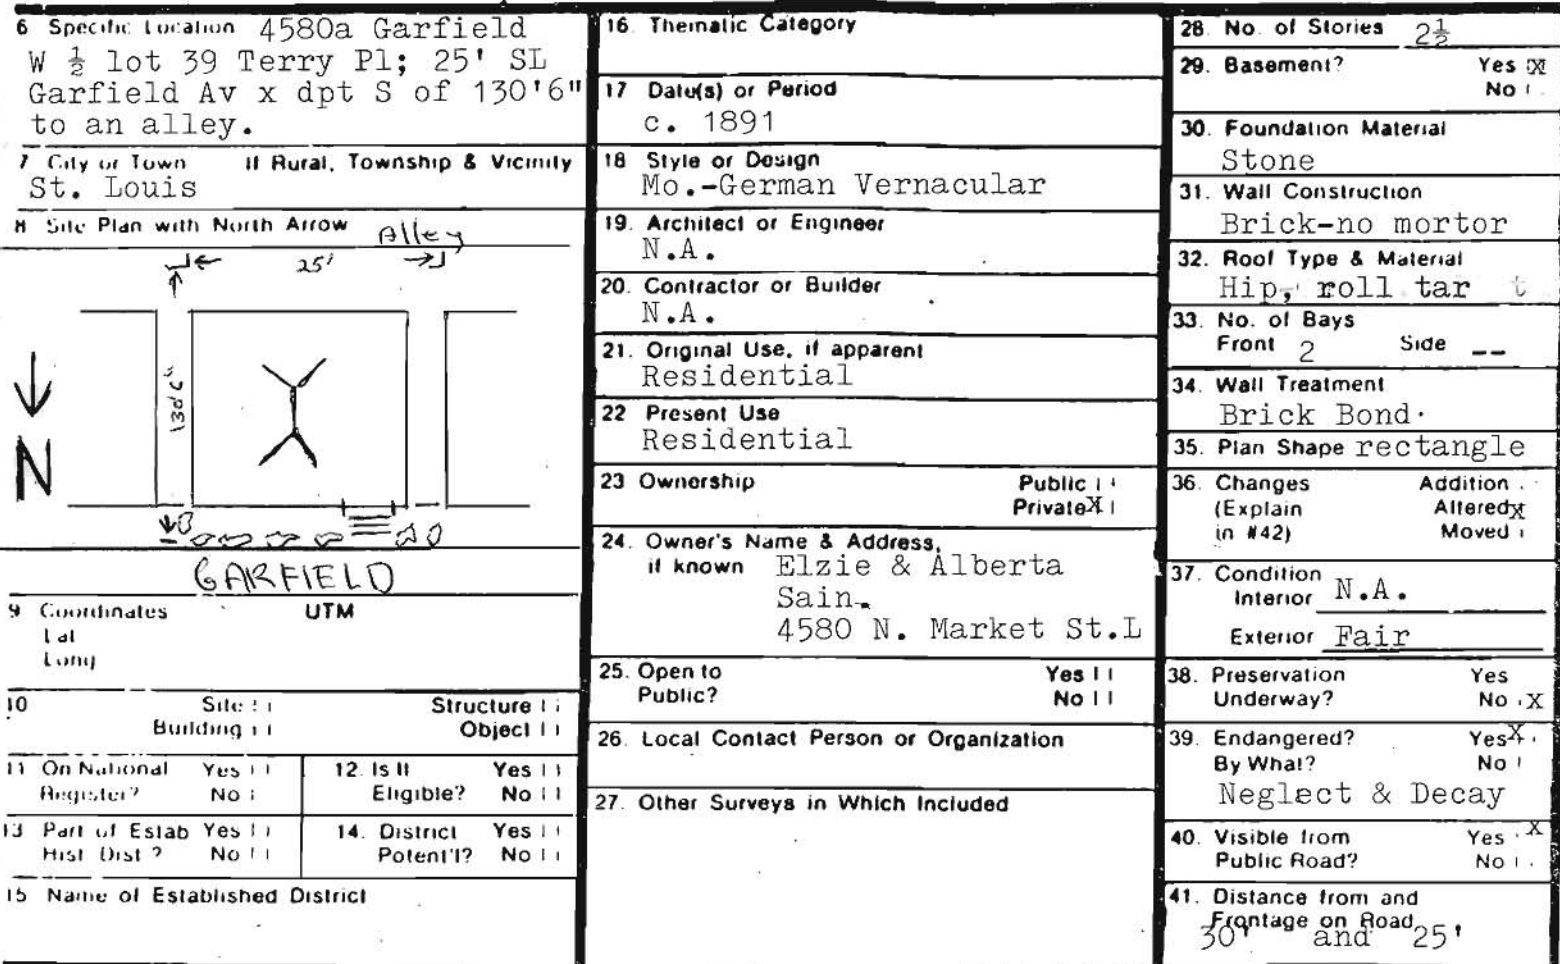 6 Specific Location 4580a Garfield
W ½ lot 39 Terry Pl; 25' SL
Garfield Av x dpt S of 130'6"
to an alley.
7 City or Town If Rural, Township & Vicinity
St. Louis
8 Site Plan with North Arrow
Alley
25'
130'6"
N
GARFIELD
9 Coordinates UTM
Lat
Long
10 Site Structure
Building Object
11 On National Yes
Register? No
12. Is It Yes
Eligible? No
13 Part of Estab Yes
Hist Dist? No
14. District Yes
Potent'l? No
15 Name of Established District
16. Thematic Category
17 Date(s) or Period
c. 1891
18 Style or Design
Mo.-German Vernacular
19. Architect or Engineer
N.A.
20. Contractor or Builder
N.A.
21. Original Use, if apparent
Residential
22 Present Use
Residential
23 Ownership Public
Private X
24. Owner's Name & Address,
if known Elzie & Alberta
Sain
4580 N. Market St.L
25. Open to Yes
Public? No
26. Local Contact Person or Organization
27. Other Surveys in Which Included
28. No. of Stories 2½
29. Basement? Yes X
No
30. Foundation Material
Stone
31. Wall Construction
Brick-no mortor
32. Roof Type & Material
Hip, roll tar
33. No. of Bays
Front 2 Side --
34. Wall Treatment
Brick Bond.
35. Plan Shape rectangle
36. Changes Addition
(Explain Altered X
in #42) Moved
37. Condition
Interior N.A.
Exterior Fair
38. Preservation Yes
Underway? No X
39. Endangered? Yes X
By What? No
Neglect & Decay
40. Visible from Yes X
Public Road? No
41. Distance from and
Frontage on Road
30' and 25'